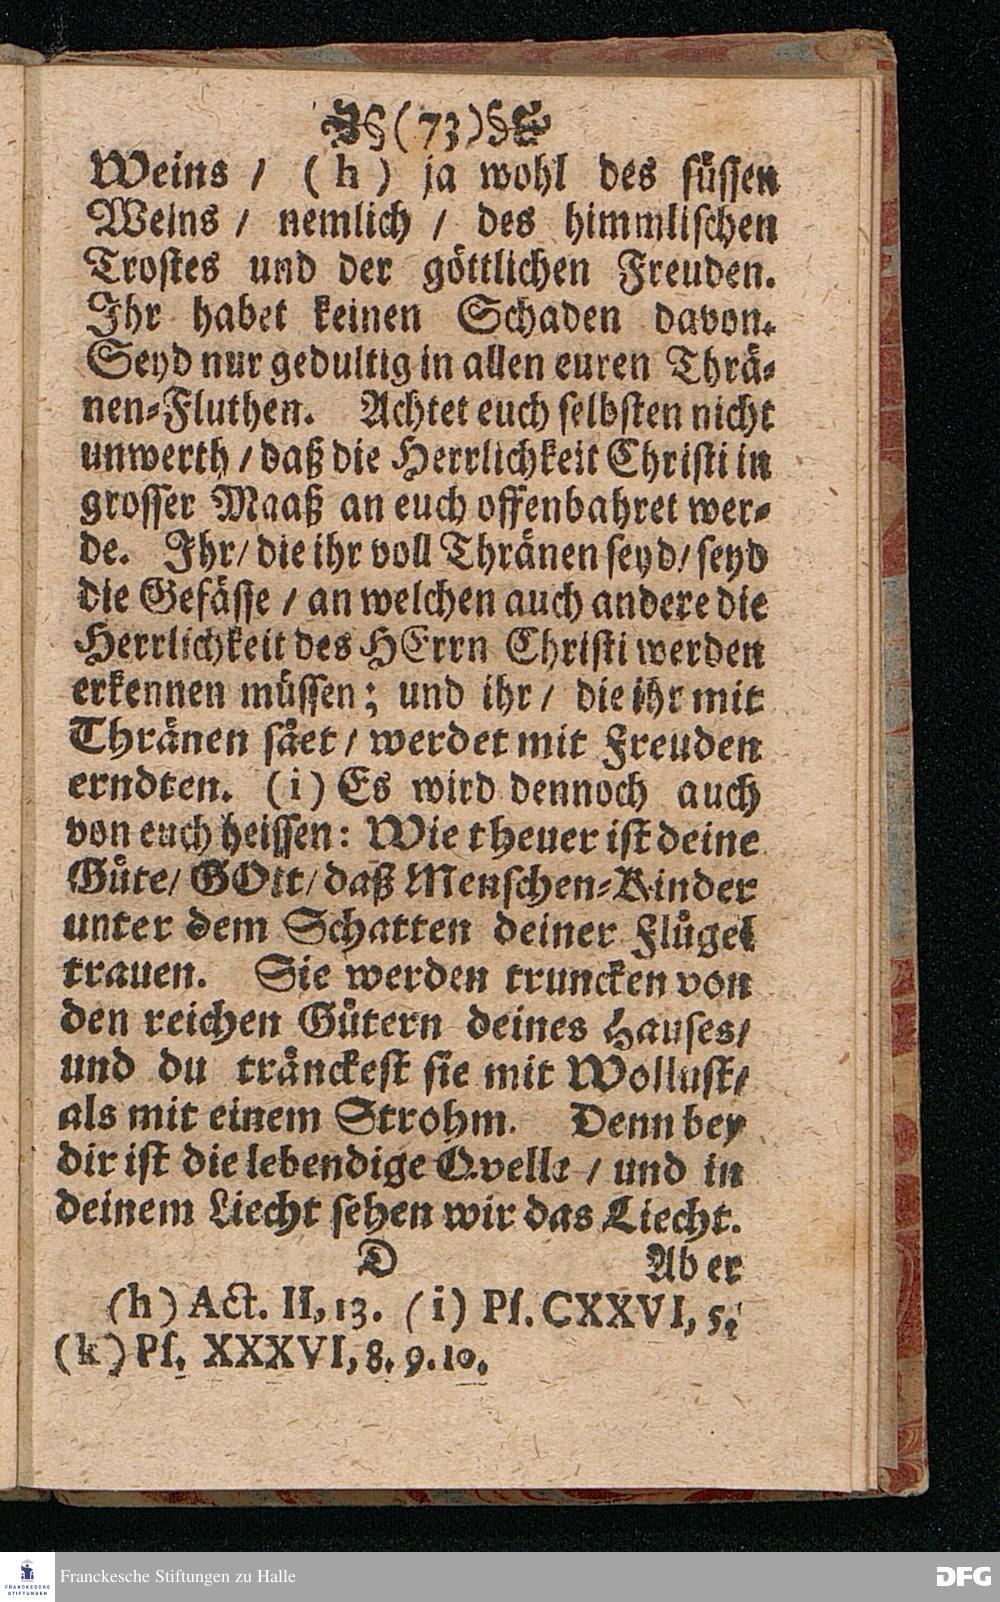 (73)
Weins / (h) ja wohl des süssen
Weins / nemlich / des himmlischen
Trostes und der göttlichen Freuden.
Ihr habet keinen Schaden davon.
Seyd nur gedultig in allen euren Thrä-
nen-Fluthen. Achtet euch selbsten nicht
unwerth / daß die Herrlichkeit Christi in
grosser Maaß an euch offenbahret wer-
de. Ihr / die ihr voll Thränen seyd / seyd
die Gefässe / an welchen auch andere die
Herrlichkeit des HErrn Christi werden
erkennen müssen; und ihr / die ihr mit
Thränen säet / werdet mit Freuden
erndten. (i) Es wird dennoch auch
von euch heissen: Wie theuer ist deine
Güte / GOtt / daß Menschen-Kinder
unter dem Schatten deiner Flügel
trauen. Sie werden truncken von
den reichen Gütern deines Hauses /
und du tränckest sie mit Wollust /
als mit einem Strohm. Denn bey
dir ist die lebendige Qvelle / und in
deinem Liecht sehen wir das Liecht.
D Aber
(h) Act. II, 13. (i) Pſ. CXXVI, 5.
(k) Pſ. XXXVI, 8. 9. 10.
FRANCKESCHE
STIFTUNGEN
Franckesche Stiftungen zu Halle
DFG